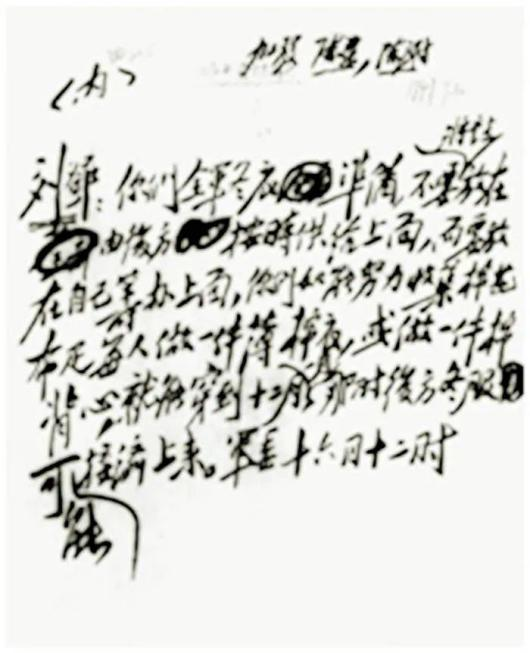 刘邓：你们全军冬衣准备不要放在
由后方按时供给上面，而要放
在自己筹办上面，你们如能努力收集棉花
布疋每人做一件薄棉衣，或做一件棉
背心，就能穿到十二月，那时后方冬服
可能接济上来。军委十六日十二时